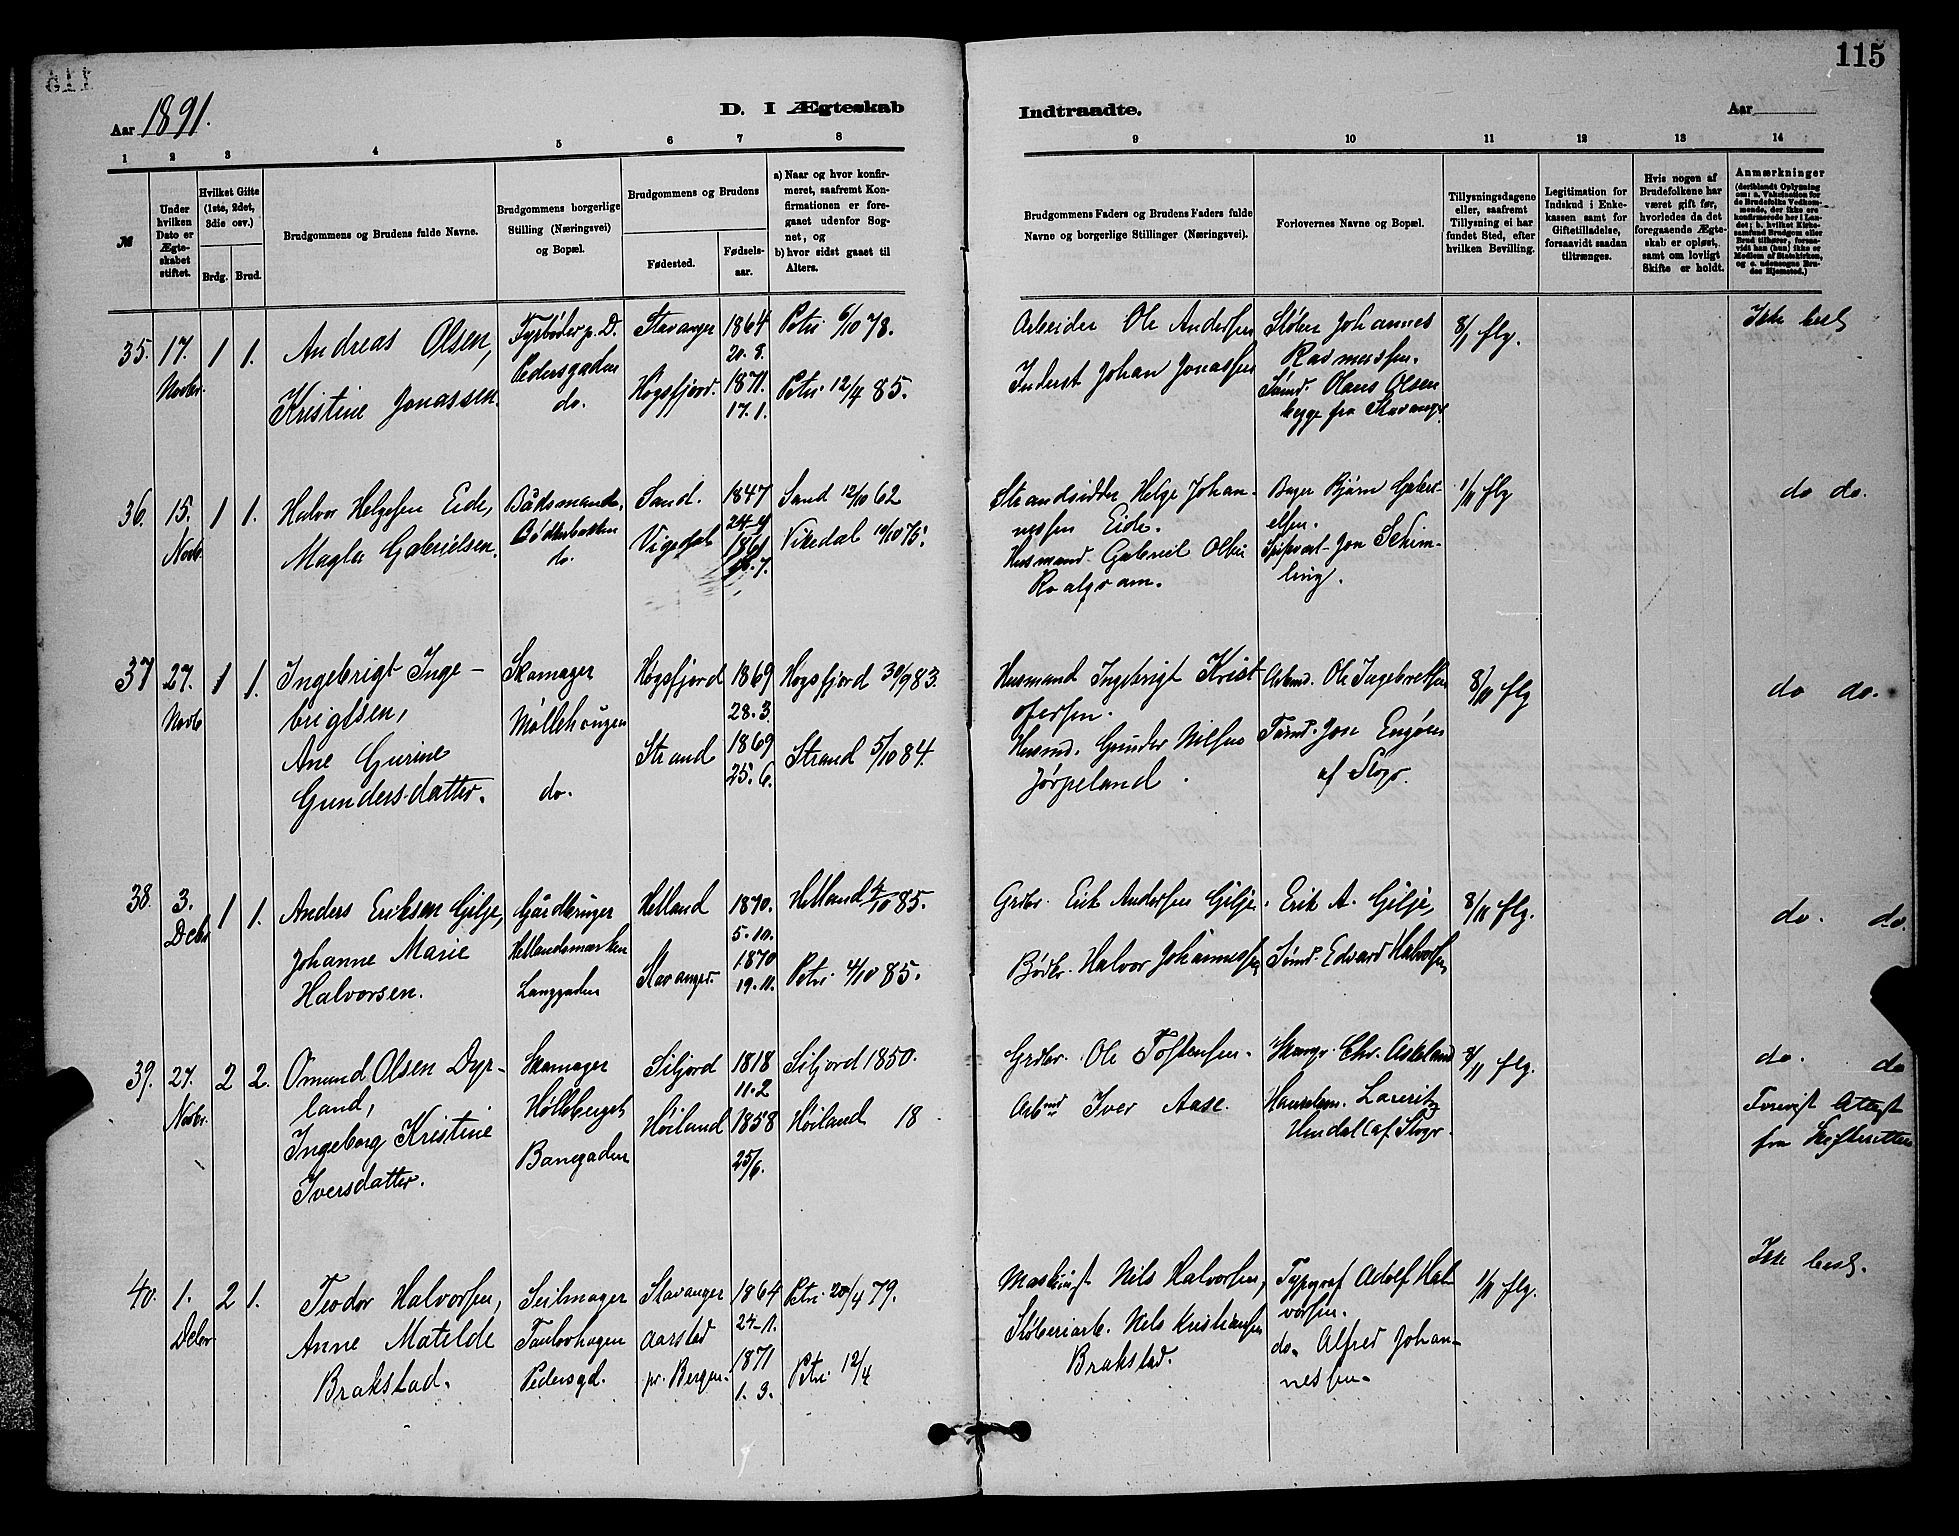 115
Aar 1891.
D. I Ægteskab
Indtraadte.
Aar
1 2 3 4 5 6 7 8
9 10 11 12 13 14
№
Under hvilken Dato er Ægteskabet stiftet.
Hvilket Gifte (1ste, 2det, 3die osv.)
Brdg. Brud.
Brudgommens og Brudens fulde Navne.
Brudgommens borgerlige Stilling (Næringsvei) og Bopæl.
Brudgommens og Brudens
Fødested.
Fødsels-aar.
a) Naar og hvor konfirmeret, saafremt Konfirmationen er foregaaet udenfor Sognet, og
b) hvor sidst gaaet til Alters.
Brudgommens Faders og Brudens Faders fulde Navne og borgerlige Stillinger (Næringsvei).
Forlovernes Navne og Bopæl.
Tillysningsdagene eller, saafremt Tillysning ei har fundet Sted, efter hvilken Bevilling.
Legitimation for Indskud i Enkekassen samt for Giftetilladelse, forsaavidt saadan tiltrænges.
Hvis nogen af Brudefolkene har været gift før, hvorledes da det foregaaende Ægteskab er opløst, samt om lovligt Skifte er holdt.
Anmærkninger
35. 17. Novbr. 1 1.
Andreas Olsen,
Kristine Jonassen.
Fyrbøder p. D.
Pedersgaden
do.
Stavanger
Høgsfjord.
1864
20. 8.
1871.
17. 1.
Petri 6/10 78.
Petri 12/4 85.
Arbeider Ole Andersen
Inderst Johan Jonassen
Støber Johannes
Rasmussen.
Sømd. Olaus Olsen
begge fra Stavanger
8/11 flg.
Ikke besl.
36. 15. Novb. 1 1.
Halvor Helgesen Eide,
Magla Gabrielsen.
Bådsmand,
Bødkerbakken
do.
Sand.
Vigedal
1847
24-4
1861
Sand 12/10 62
Vikedal 10/10 75.
Strandsidder Helge Johan-
nessen Eide.
Husmand Gabriel Olsen
Roalqvam.
Bager Bjørn Gabri-
elsen.
Jon Schim-
ling.
1/11 flg
do do.
37 27. Novb 1 1.
Ingebrigt Inge-
brigtsen,
Ane Gurine
Gundersdatter.
Skomager
Møllehougen
do.
Høgsfjord
Strand
1869
28. 3.
1869
25. 6.
Høgsfjord 30/9 83.
Strand 5/10 84.
Husmand Ingebrigt Krist
ofersen.
Husmd. Gunder Nilsen
Jørpeland.
Arbmd. Ole Ingebretsen
Tømd. Jon Engøen
af Stvgr.
8/11 flg
do do.
38. 3. Debr 1 1.
Anders Eriksen Gilje,
Johanne Marie
Halvorsen.
Gårdbruger
Hellandsmarken
Langgaden
Helland
Stavanger.
1870.
5. 10.
1870
19. 11.
Helland 4/10 85.
Petri 4/10 85.
Grdbr. Erik Andersen Gilje.
Bødkr. Halvor Johannessen
Erik A. Gilje,
Sømd. Edvard Halvorsen
8/11 flg.
do. do.
39. 27. Novbr. 2 2.
Omund Olsen Dyr-
land,
Ingeborg Kristine
Iversdatter.
Skomager
Hølleberget
Banegaden
Siljord
Høiland
1818
11. 2
1858
25/6.
Siljord 1850.
Høiland 18
Grdbr. Ole Tostensen.
Arbmd Iver Aase.
Skomgr. Chr. Askeland
Lauritz
af Stvgr.
8/11 flg.
do. do
Forevist Attest
fra Skifteretten
40. 1. Debr 2 1.
Teodor Halvorsen,
Anne Matilde
Brakstad.
Seilmager
Taulovhagen
Pedersgd.
Stavanger
Aarstad
pr. Bergen.
1864
24-1.
1871
1. 3.
Petri 20/4 79.
Petri 12/4
Maskinist Nils Halvorsen,
Støberiarb. Nils Kristiansen
Brakstad.
Typograf Adolf Hal
vorsen.
do. Alfred Johan-
nessen.
1/11 flg.
Ikke besl.